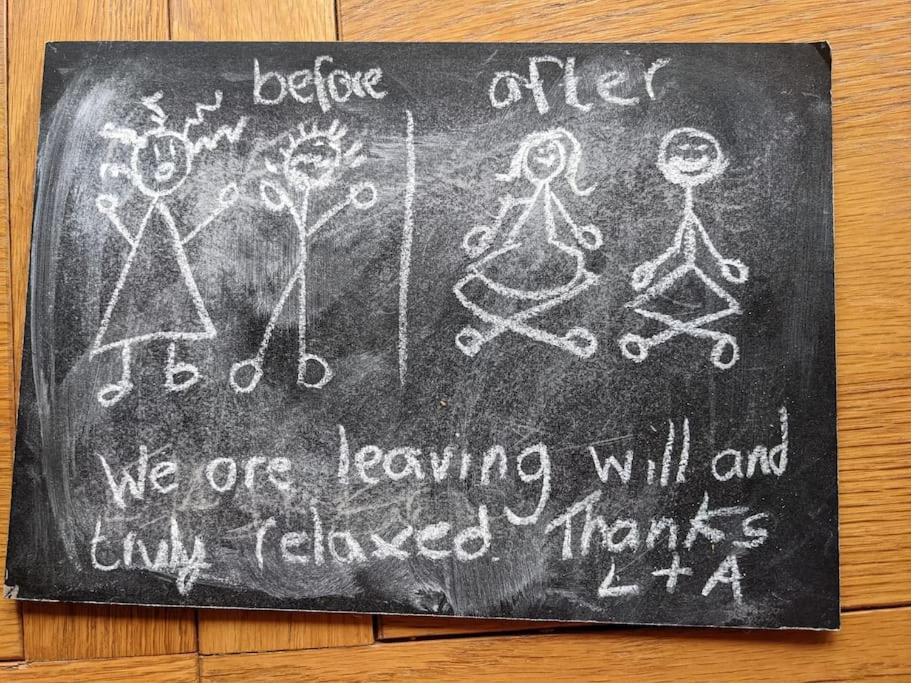 before after
We are leaving will and
truly relaxed. Thanks
L + A